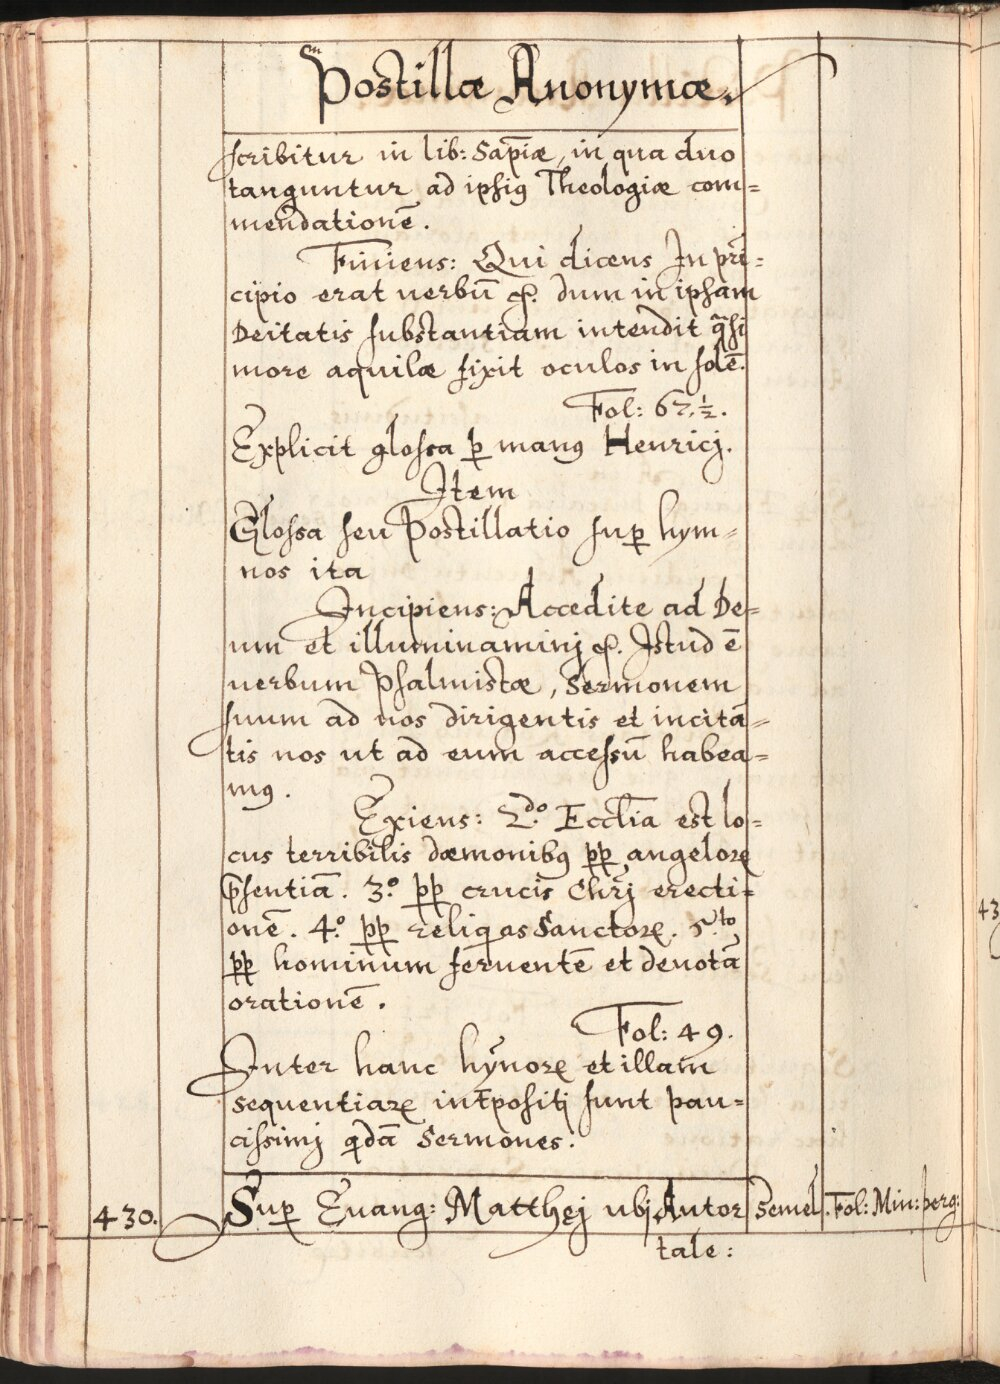 Postillæ Anonymæ.
scribitur in lib: Sap̄iæ, in qua duo
tanguntur ad ipsiꝰ Theologiæ com=
mendationē.
Finiens: Qui dicens In prī=
cipio erat uerbū &. dum in ipsam
Deitatis substantiam intendit q̄si
more aquilæ fixit oculos in solē.
Fol: 67.½.
Explicit glossa ꝑ manꝰ Henricj.
Item
Glossa seu Postillatio suꝑ hym=
nos ita
Incipiens: Accedite ad De=
um et illuminaminj &. Istud ē
uerbum Psalmistæ, Sermonem
suum ad nos dirigentis et incitā=
tis nos ut ad eum accessū habea=
mꝰ.
Exiens: 2.do Eccl̄ia est lo=
cus terribilis dæmonibꝰ ꝑꝑ angeloꝝ
p̄sentiā. 3.o ꝑꝑ crucis Chr̄j erecti=
onē. 4.o ꝑꝑ reliq̄as Sanctoꝝ. 5.to
ꝑꝑ hominum feruentē et deuotā
orationē.
Fol: 49.
Inter hanc hȳnoꝝ et illam
sequentiaꝝ int̄positj sunt pau=
cissimj q̄dā Sermones.
430. Suꝑ Euang: Matthęj ubj Autor Semel. Fol: Min: perg:
tale:
43